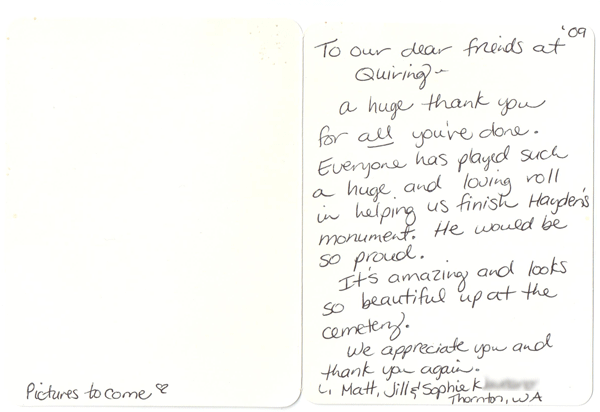 '09
To our dear friends at
Quiring ~
a huge thank you
for all you've done.
Everyone has played such
a huge and loving roll
in helping us finish Hayden's
monument. He would be
so proud.
It's amazing and looks
so beautiful up at the
cemetery.
We appreciate you and
thank you again.
Matt, Jill & Sophie K
Thornton, WA
Pictures to come ♡